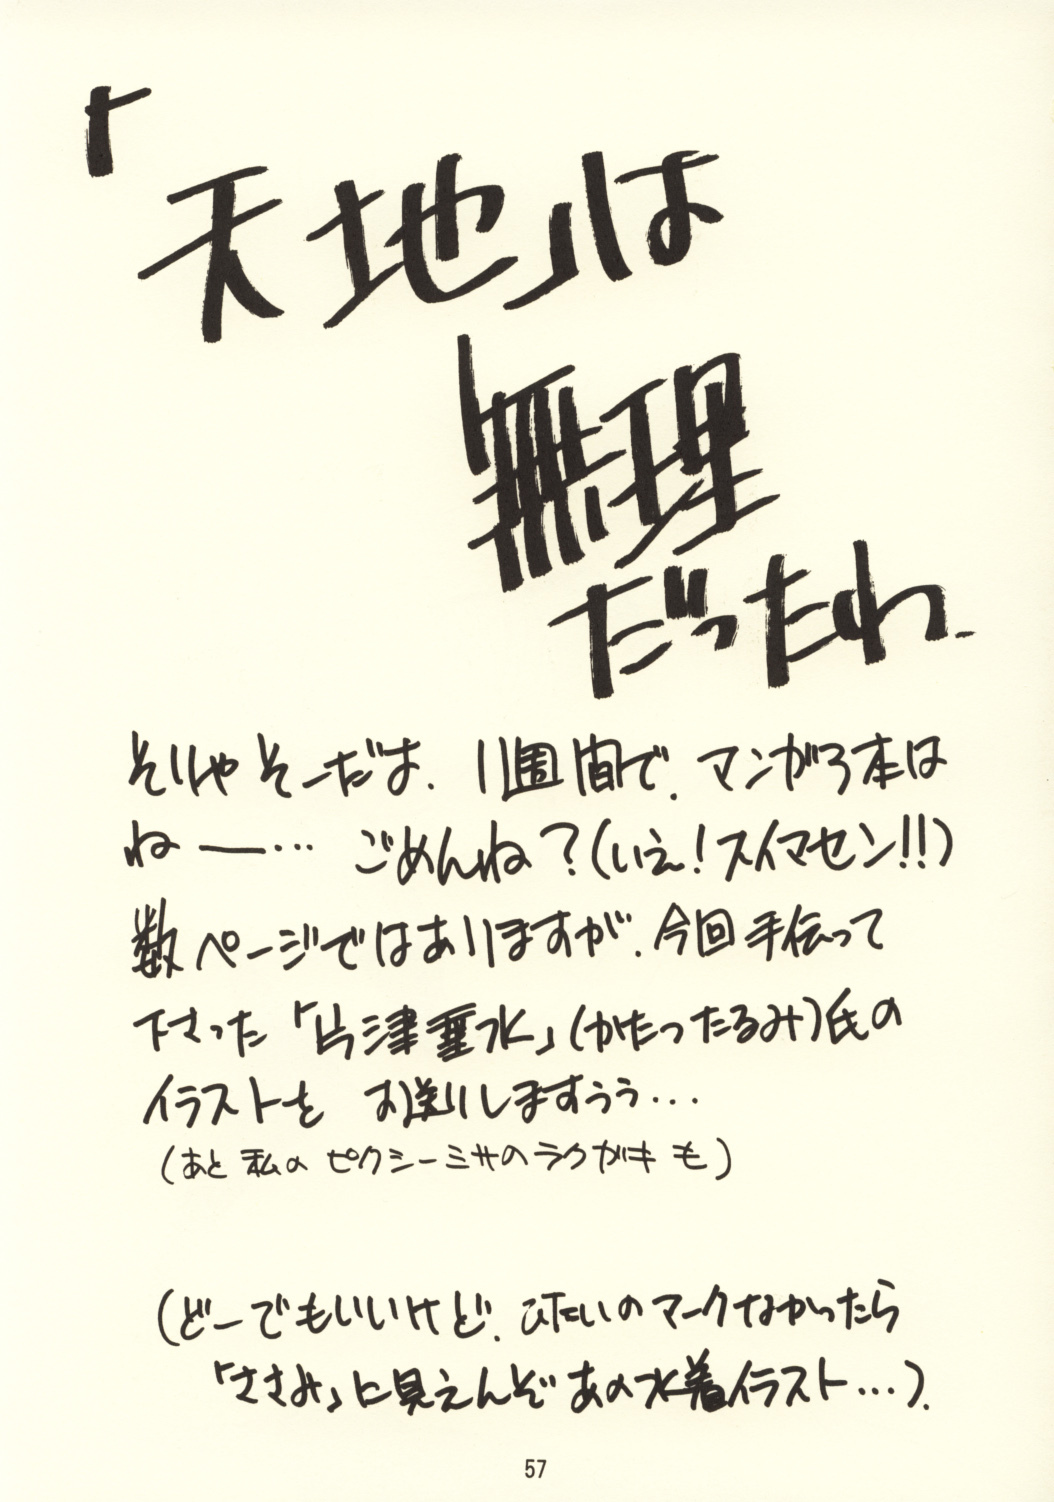 「天地」は
無理
だったわ
そりゃそーだよ、1週間で、マンガ3本は
ねー… ごめんね？(いえ！スイマセン!!)
数ページではありますが、今回手伝って
下さった「片津垂水」(かたつたるみ)氏の
イラストを お送りしますぅぅ…
(あと私のピクシーミサのラクガキも)
(どーでもいいけど、ひたいのマークなかったら
「ささみ」に見えんぞあの水着イラスト…).
57